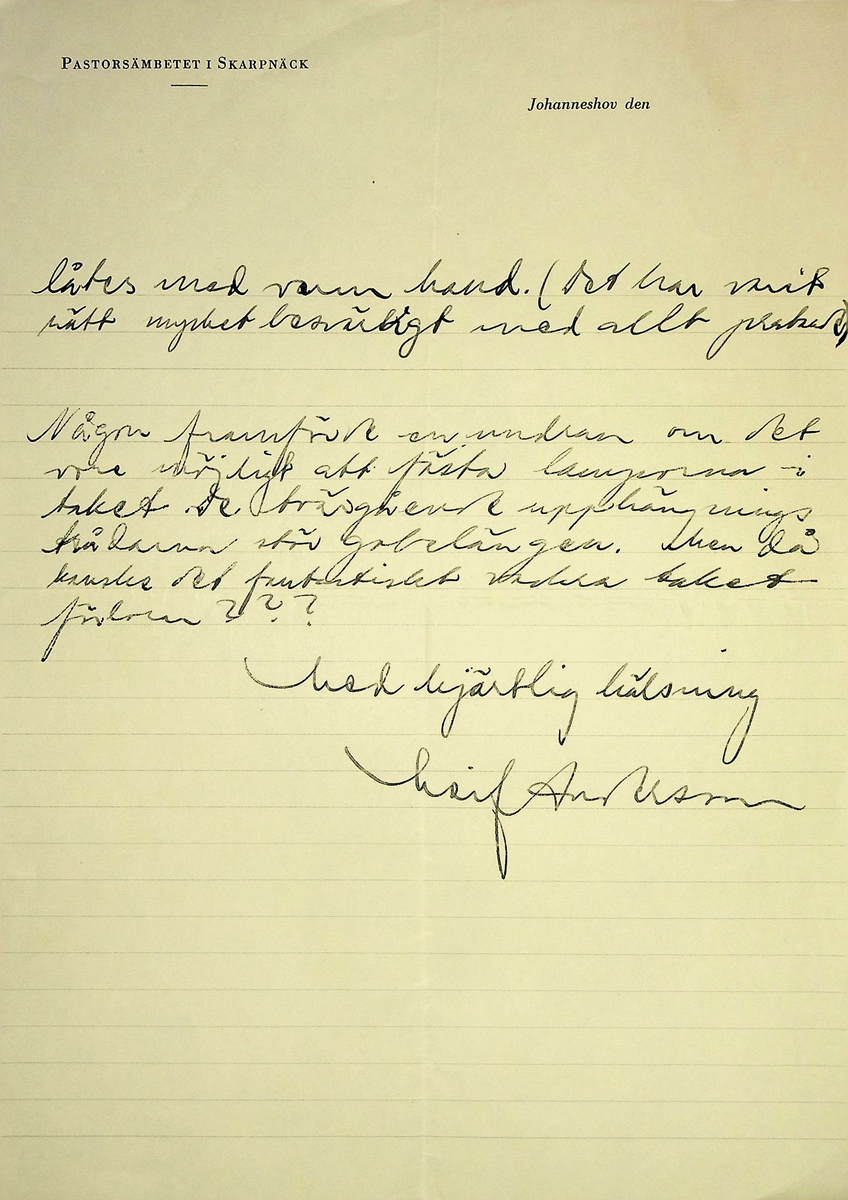 PASTORSÄMBETET I SKARPNÄCK
Johanneshov den
låtes med varm hand. (Det har varit
rätt mycket besvärligt med allt pratandet)
Någon framförde en undran om det
vore möjligt att fästa lamporna i
taket. De tvärgående upphängnings
trådarna stör gobelängen. Men då
kanske det fantastiskt vackra taket
förlorar ???
Med hjärtlig hälsning
Leif Andersson